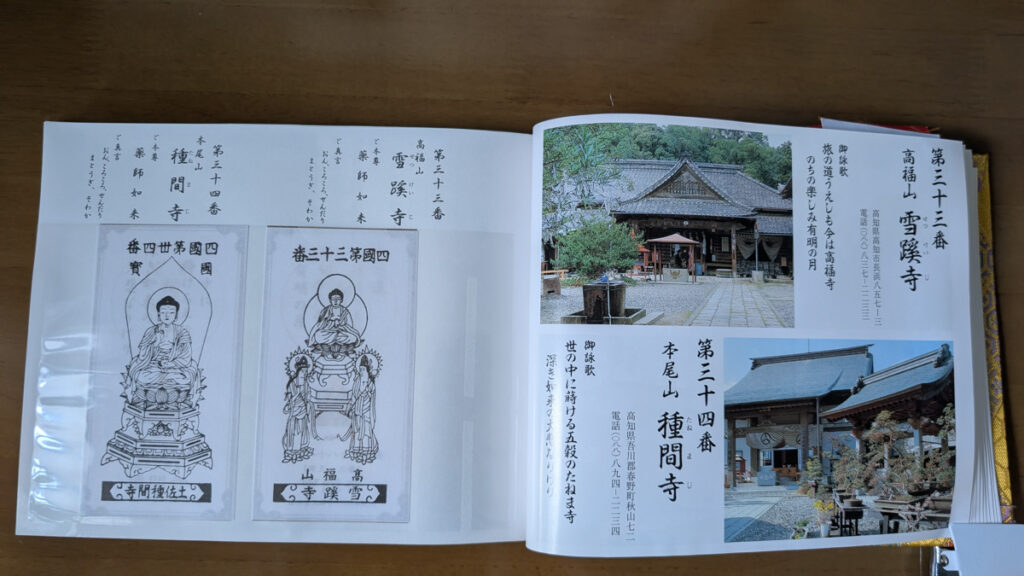 第三十三番
高福山 雪蹊寺
せっけいじ
高知県高知市長浜八五七ー三
電話(〇八八)八三七ー二二三三
御詠歌
旅の道うえしも今は高福寺
のちの楽しみ有明の月
第三十四番
本尾山 種間寺
たねまじ
高知県吾川郡春野町秋山七二
電話(〇八八)八九四ー二二三四
御詠歌
世の中に蒔ける五穀のたねま寺
深き
第三十三番
高福山
雪蹊寺
ご本尊
薬師如来
ご真言
おん、ころころ、せんだり、
まとうぎ、そわか
四國第三十三番
高福山
雪蹊寺
第三十四番
本尾山
種間寺
ご本尊
薬師如来
ご真言
おん、ころころ、せんだり、
まとうぎ、そわか
四國第卅四番
國寶
土佐種間寺